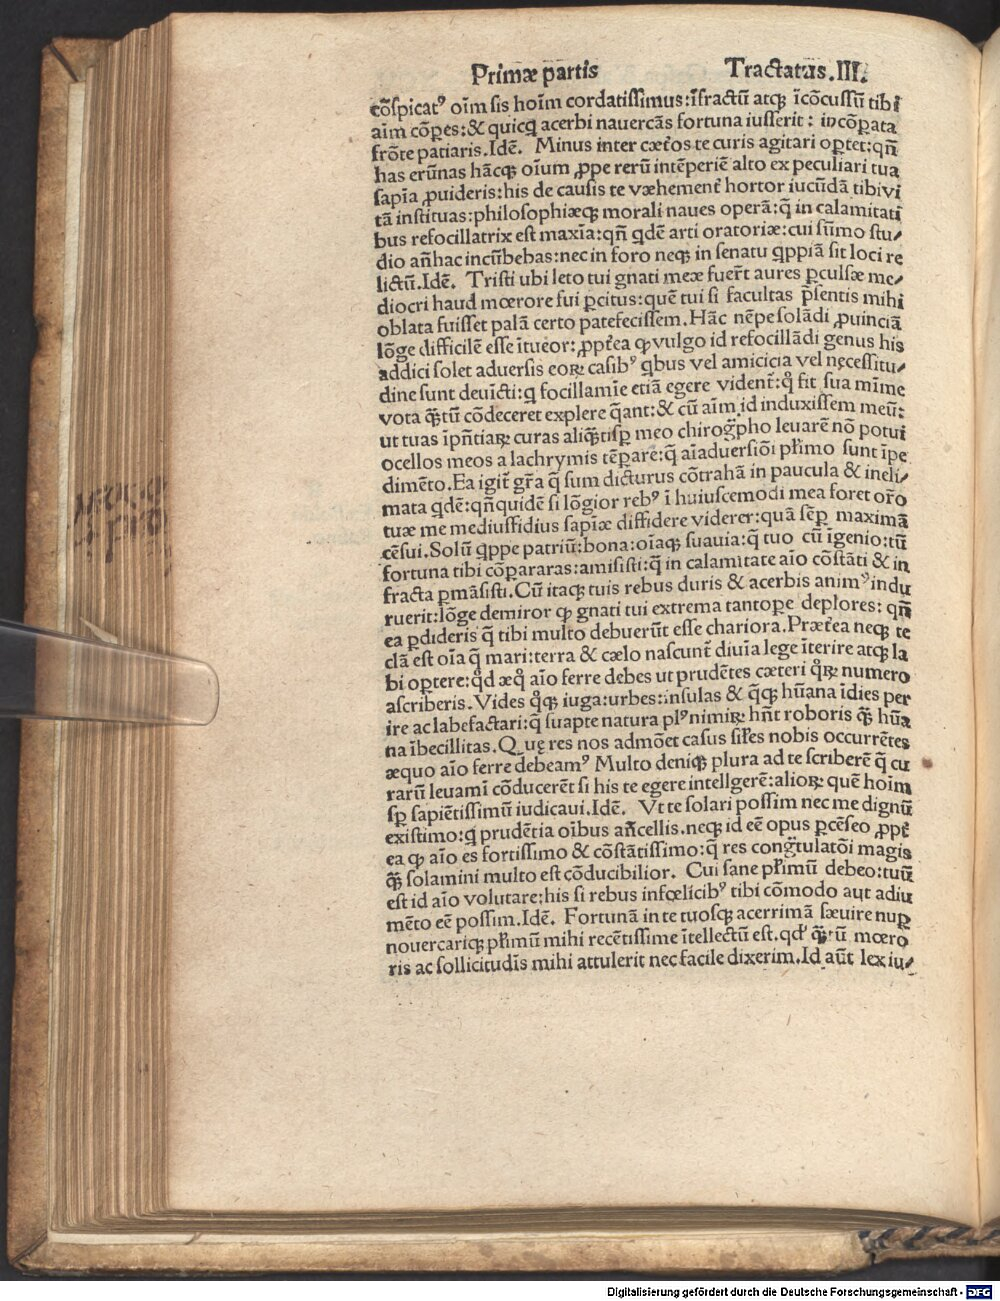 Primæ partis Tractatus.III.
cõſpicatꝰ oĩm ſis hoĩm cordatiſſimus:ĩfractũ atqꝫ ĩcõcuſſũ tibi
aĩm cõpes:& quicq̃ acerbi nauercãs fortuna iuſſerit: incõpata
frõte patiaris.Idẽ. Minus inter cæt̃os te curis agitari oꝑtet:qñ
has erũnas hãcqꝫ oĩum ꝓpe rerũ intẽperiẽ alto ex peculiari tua
ſapĩa ꝓuideris:his de cauſis te væhement̃ hortor iucũdã tibi vi
tã inſtituas:philoſophiæqꝫ morali naues operã:q̃ in calamitati
bus refocillatrix eſt maxĩa:qñ qdẽ arti oratoriæ:cui ſũmo ſtu⸗
dio añhac incũbebas:nec in foro neqꝫ in ſenatu qppiã ſit loci re
lictũ.Idẽ. Triſti ubi leto tui gnati meæ fuer̃t aures ꝑculſæ me⸗
diocri haud mœrore fui ꝑcitus:quẽ tui ſi facultas p̃ſentis mihi
oblata fuiſſet palã certo patefeciſſem.Hãc nẽpe ſolãdi ꝓuinciã
lõge difficilẽ eſſe ĩtueor:ꝓpt̃ea ꝙ vulgo id refocillãdi genus his
addici ſolet aduerſis eoꝝ caſibꝰ qbus vel amicicia vel neceſſitu⸗
dine ſunt deuĩcti:q focillamĩe etiã egere vident̃:q̊ fit ſua mĩme
vota q̃ꝫtũ cõdeceret explere q̃ant:& cũ aĩm id induxiſſem meũ:
ut tuas ĩpñtiaꝝ curas aliq̃ꝫtiſꝑ meo chirogr̃pho leuarẽ nõ potui
ocellos meos a lachrymis tẽparẽ:q̃ aĩaduerſiõi pr̃imo ſunt ĩpe
dimẽto.Ea igit̃ gr̃a q̃ ſum dicturus cõtrahã in paucula & ineli⸗
mata qdẽ:qñquidẽ ſi lõgior rebꝰ ĩ huiuſcemodi mea foret or̃o
tuæ me mediuſfidius ſapĩæ diffidere viderer:quã ſẽꝑ maximã
cẽſui.Solũ qppe patriũ:bona:oĩaqꝫ ſuauia:q̃ tuo cũ ĩgenio:tũ
fortuna tibi cõpararas:amiſiſti:q̃ in calamitate aĩo cõſtãti & in
fracta ꝑmãſiſti.Cũ itaqꝫ tuis rebus duris & acerbis animꝰ indu
ruerit:lõge demiror ꝙ gnati tui extrema tantoꝑe deplores: qñ
ea ꝑdideris q̃ tibi multo debuerũt eſſe chariora.Præt̃ea neqꝫ te
clã eſt oĩa q̃ mari:terra & cælo naſcunt̃ diuĩa lege ĩterire atqꝫ la
bi oꝑtere:q̊d æq̊ aĩo ferre debes ut prudẽtes cæteri q̊ꝝ numero
aſcriberis.Vides q̊qꝫ iuga:urbes:inſulas & q̃qꝫ hũana ĩdies per
ire ac labefactari:q̃ ſuapte natura plꝰ nimiꝝ hñt roboris q̃ꝫ hũa
na ĩbecillitas.Quę res nos admõet caſus ſil̃es nobis occurrẽtes
æquo aĩo ferre debeamꝰ Multo deniqꝫ plura ad te ſcriberẽ q̃ cu
rarũ leuamĩ cõducerẽt ſi his te egere intellgerẽ:alioꝝ quẽ hoĩm
ſꝑ ſapiẽtiſſimũ iudicaui.Idẽ. Vt te ſolari poſſim nec me dignũ
exiſtimo:q prudẽtia oĩbus añcellis.neqꝫ id eẽ opus ꝑcẽſeo ꝓpt̃
ea ꝙ aĩo es fortiſſimo & cõſtãtiſſimo:q̃ res congr̃tulatõi magis
q̃ꝫ ſolamini multo eſt cõducibilior. Cui ſane pr̃imũ debeo:tuũ
eſt id aĩo volutare:his ſi rebus infœlicibꝰ tibi cõmodo aut adiu
mẽto eẽ poſſim.Idẽ. Fortunã in te tuoſqꝫ acerrimã ſæuire nuꝑ
nouercariqꝫ pr̃imũ mihi recẽtiſſime ĩtellectũ eſt.qd̕ q̃ꝫtũ mœro
ris ac ſollicitudĩs mihi attulerit nec facile dixerim.Id aũt lex iu⸗
Digitalisierung gefördert durch die Deutsche Forschungsgemeinschaft - DFG